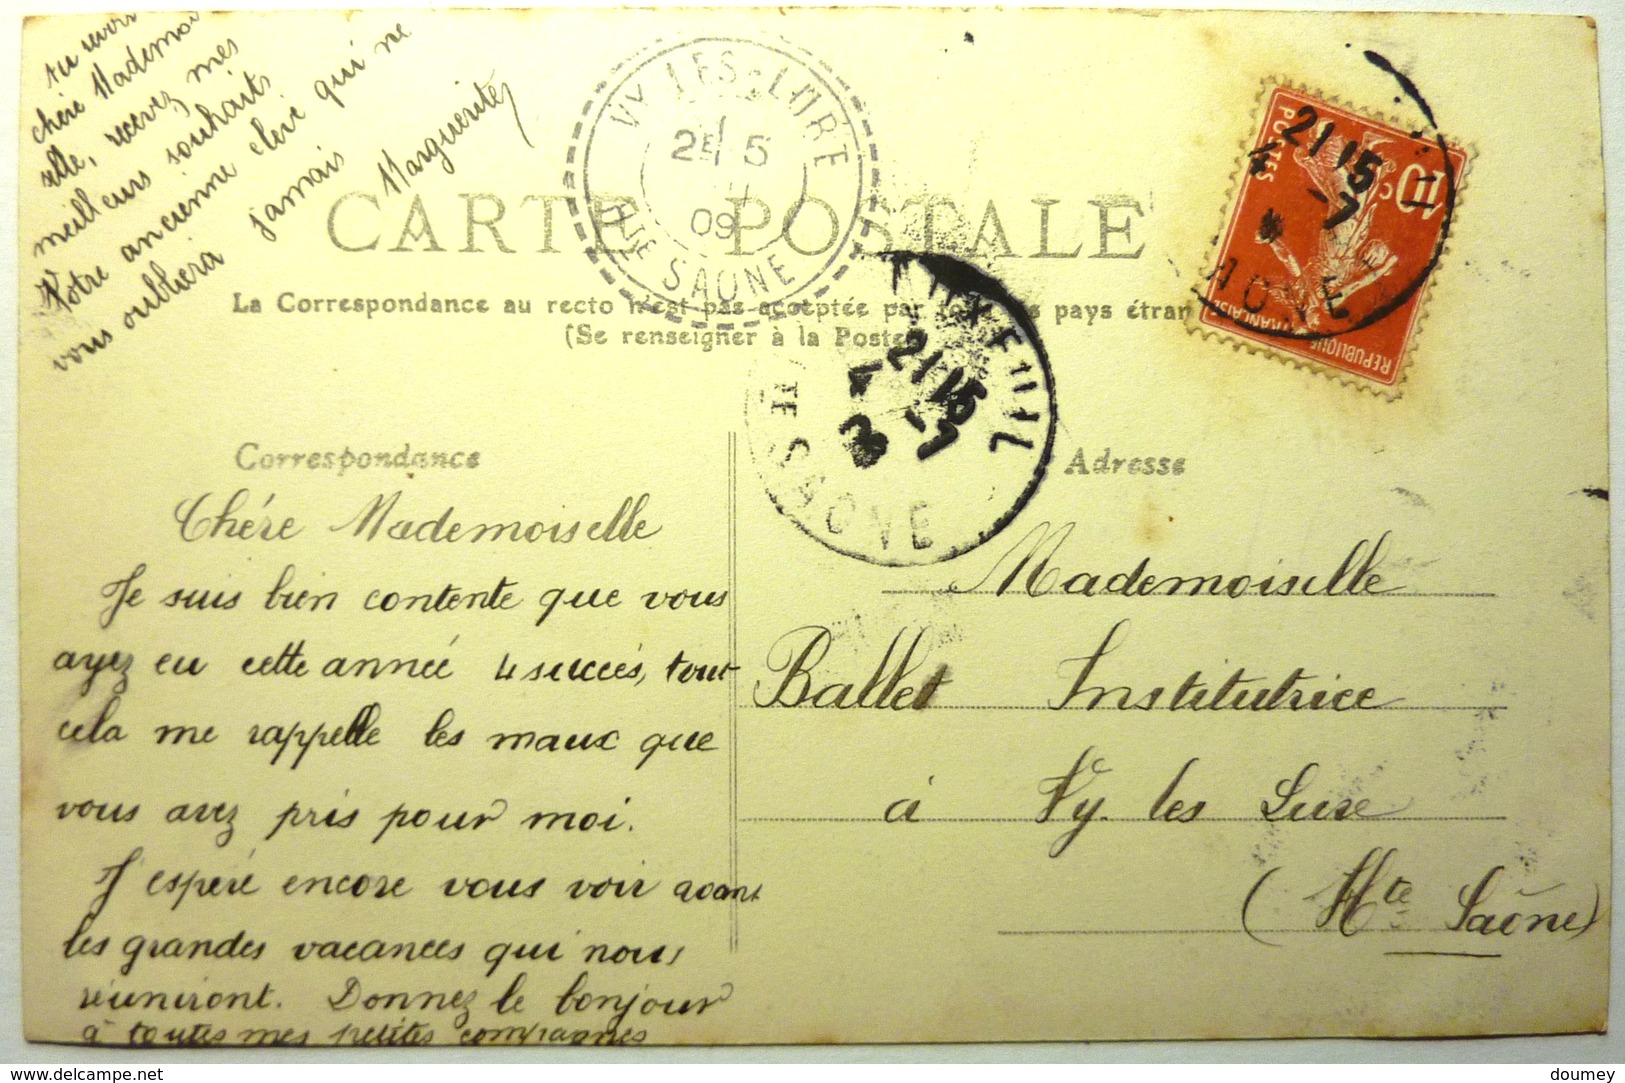 au revoir
chère Mademoi
selle, recevez mes
meilleurs souhaits
Votre ancienne élève qui ne
vous oubliera jamais
Marguerite
VY-LES-LURE
2E 5
7
09
HTE SAONE
CARTE POSTALE
La Correspondance au recto n'est pas acceptée par tous les pays étran
(Se renseigner à la Poste)
21 15
4 -7
LUXEUIL
21 15
4 -7
09
HTE SAONE
10c
POSTES
REPUBLIQUE FRANÇAISE
Correspondance
Chére Mademoiselle
Je suis bien contente que vous
ayez eu cette année 4 succés, tout
cela me rappelle les maux que
vous avez pris pour moi.
J'espére encore vous voir avant
les grandes vacances qui nous
réuniront. Donnez le bonjour
à toutes mes petites compagnes
Adresse
Mademoiselle
Ballet Institutrice
à Vy. les Lure
(Hte Saône)
https://www.delcampe.net
doumey